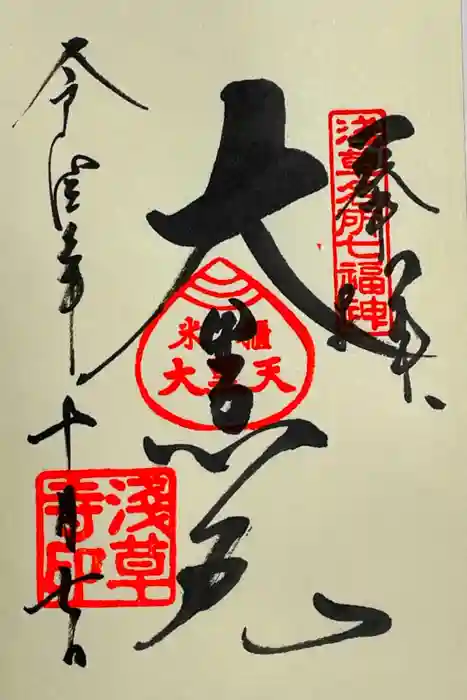 奉拝
淺草名所七福神
大黒天
米櫃
大黒天
令和
年
十月七日
淺草
寺印